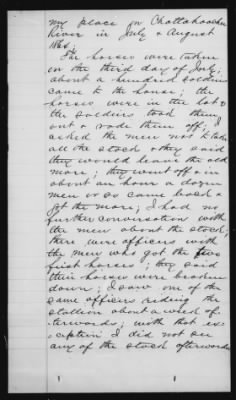 my place on Chattahoochee
River in July & August
1864.
The horses were taken
on the third day of July;
about a hundred soldiers
came to the house; the
horses were in the lot &
the soldiers took them
out & rode them off; I
asked the men not to take
all the stock & they said
they would leave the old
mare; they went off & in
about an hour a dozen
men or so came back &
got the mare; I had no
further conversation with
the men about the stock;
there were officers with
the men who got the five
first horses; they said
their horses were broken
down; I saw one of the
same officers riding the
stallion about a week af-
terwards; with that ex-
ception I did not see
any of the stock afterwards